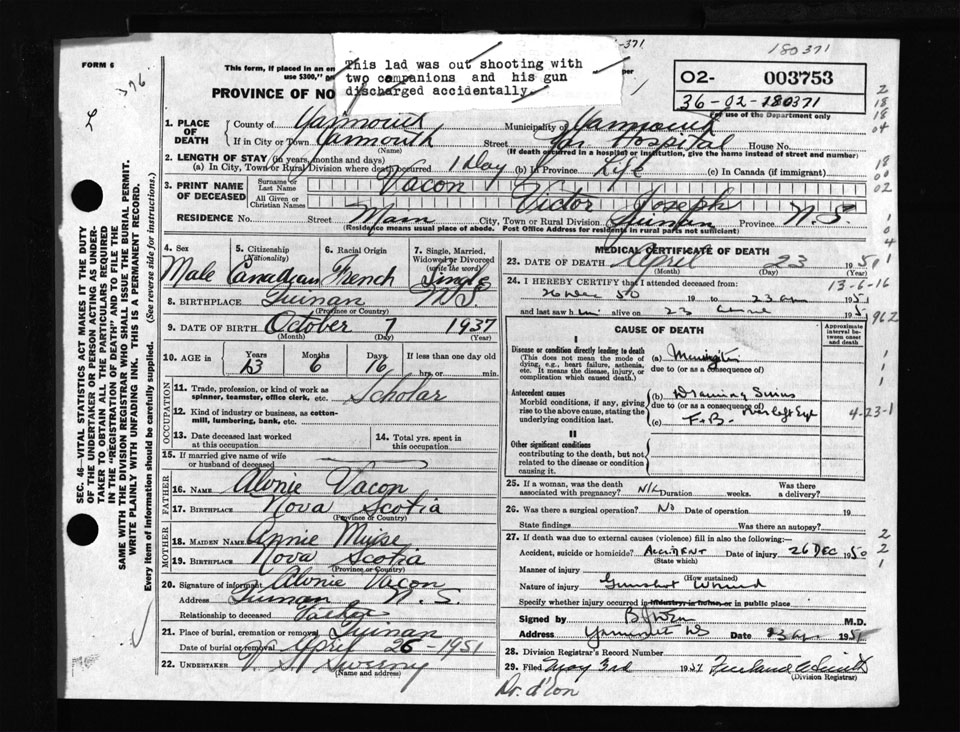 -371
180371
FORM 6
376
This form, if placed in an en
use $300," an
This lad was out shooting with
two companions and his gun
discharged accidentally.
PROVINCE OF NO
O2- 003753
36-02-180371
For use of the Department only
1. PLACE OF DEATH
County of Yarmouth Municipality of Yarmouth
If in City or Town Yarmouth Street Yar Hospital House No.
(Name) (If death occurred in a hospital or institution, give the name instead of street and number)
2. LENGTH OF STAY (in years, months and days)
(a) In City, Town or Rural Division where death occurred 1 Day (b) In Province Life (c) In Canada (if immigrant)
3. PRINT NAME OF DECEASED
Surname or Last Name Vacon
All Given or Christian Names Victor Joseph
RESIDENCE No. Street Main City, Town or Rural Division Quinan Province N.S
(Residence means usual place of abode. Post Office Address for residents in rural parts not sufficient)
4. Sex Male
5. Citizenship (Nationality) Canadian
6. Racial Origin French
7. Single, Married, Widowed or Divorced (write the word) Single
8. BIRTHPLACE Quinan N.S.
(Province or Country)
9. DATE OF BIRTH October 7 1937
(Month) (Day) (Year)
10. AGE in Years 13 Months 6 Days 16 If less than one day old
hrs. or min.
OCCUPATION
11. Trade, profession, or kind of work as
spinner, teamster, office clerk, etc. Scholar
12. Kind of industry or business, as cotton-
mill, lumbering, bank, etc.
13. Date deceased last worked
at this occupation
14. Total yrs. spent in
this occupation
15. If married give name of wife
or husband of deceased
FATHER
16. NAME Alonie Vacon
17. BIRTHPLACE Nova Scotia
(Province or Country)
MOTHER
18. MAIDEN NAME Annie Muise
19. BIRTHPLACE Nova Scotia
(Province or Country)
20. Signature of informant Alonie Vacon
Address Quinan N.S.
Relationship to deceased Father
21. Place of burial, cremation or removal Quinan
Date of burial or removal April 26-1951
22. UNDERTAKER V. S. Sweeny
(Name and address)
MEDICAL CERTIFICATE OF DEATH
23. DATE OF DEATH April 23 1951
(Month) (Day) (Year)
24. I HEREBY CERTIFY that I attended deceased from: 13-6-16
26 Dec 50 19 to 23 Apr 1951
and last saw h im alive on 23 195
962
CAUSE OF DEATH
Approximate interval between onset and death
I
Disease or condition directly leading to death
(This does not mean the mode of dying, e.g., heart failure, asthenia, etc. It means the disease, injury, or complication which caused death.)
(a) Meningitis
due to (or as a consequence of)
Antecedent causes
Morbid conditions, if any, giving rise to the above cause, stating the underlying condition last.
(b) Draining Sinus
due to (or as a consequence of) over left Eye
(c) F.B.
4-23-1
II
Other significant conditions
contributing to the death, but not related to the disease or condition causing it.
25. If a woman, was the death
associated with pregnancy? Nil Duration weeks. Was there a delivery?
26. Was there a surgical operation? No Date of operation 19
State findings Was there an autopsy?
27. If death was due to external causes (violence) fill in also the following:—
Accident, suicide or homicide? ACCIDENT Date of injury 26 DEC 1950
(State which)
Manner of injury
(How sustained)
Nature of injury Gunshot Wound
Specify whether injury occurred in industry, in home, or in public place
Signed by M.D.
Address Yarmouth NS Date 23 Apr 1951
28. Division Registrar's Record Number
29. Filed May 3rd 1951
(Division Registrar)
Dr. d'Eon
SEC. 46—VITAL STATISTICS ACT MAKES IT THE DUTY
OF THE UNDERTAKER OR PERSON ACTING AS UNDER-
TAKER TO OBTAIN ALL THE PARTICULARS REQUIRED
IN THE "REGISTRATION OF DEATH" AND TO FILE THE
SAME WITH THE DIVISION REGISTRAR WHO SHALL ISSUE THE BURIAL PERMIT.
WRITE PLAINLY WITH UNFADING INK. THIS IS A PERMANENT RECORD.
Every item of information should be carefully supplied. (See reverse side for instructions.)